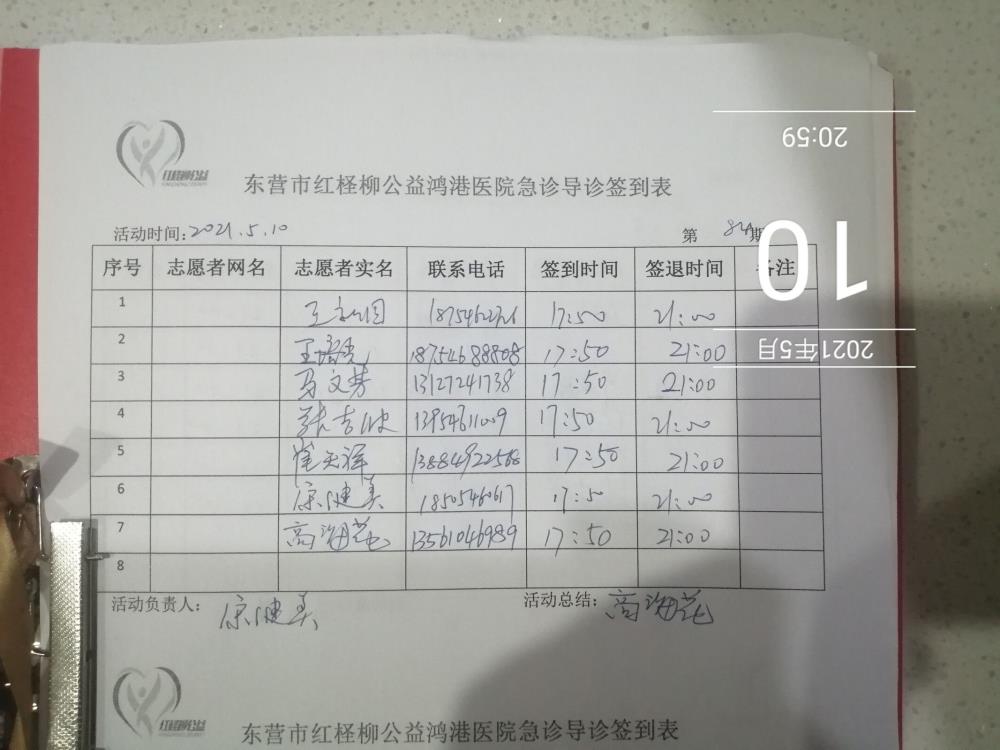 红柽柳公益
东营市红柽柳公益鸿港医院急诊导诊签到表
活动时间:2021.5.10 第 期
序号 志愿者网名 志愿者实名 联系电话 签到时间 签退时间 备注
1 17:50 21:00
2 18754688808 17:50 21:00
3 马文芳 13127241738 17:50 21:00
4 13954611009 17:50 21:00
5 崔天祥 13884922568 17:50 21:00
6 康健美 17:50 21:00
7 高海花 13561046989 17:50 21:00
8
活动负责人: 康健美 活动总结: 高海花
20:59
10
2021年5月
红柽柳公益
东营市红柽柳公益鸿港医院急诊导诊签到表